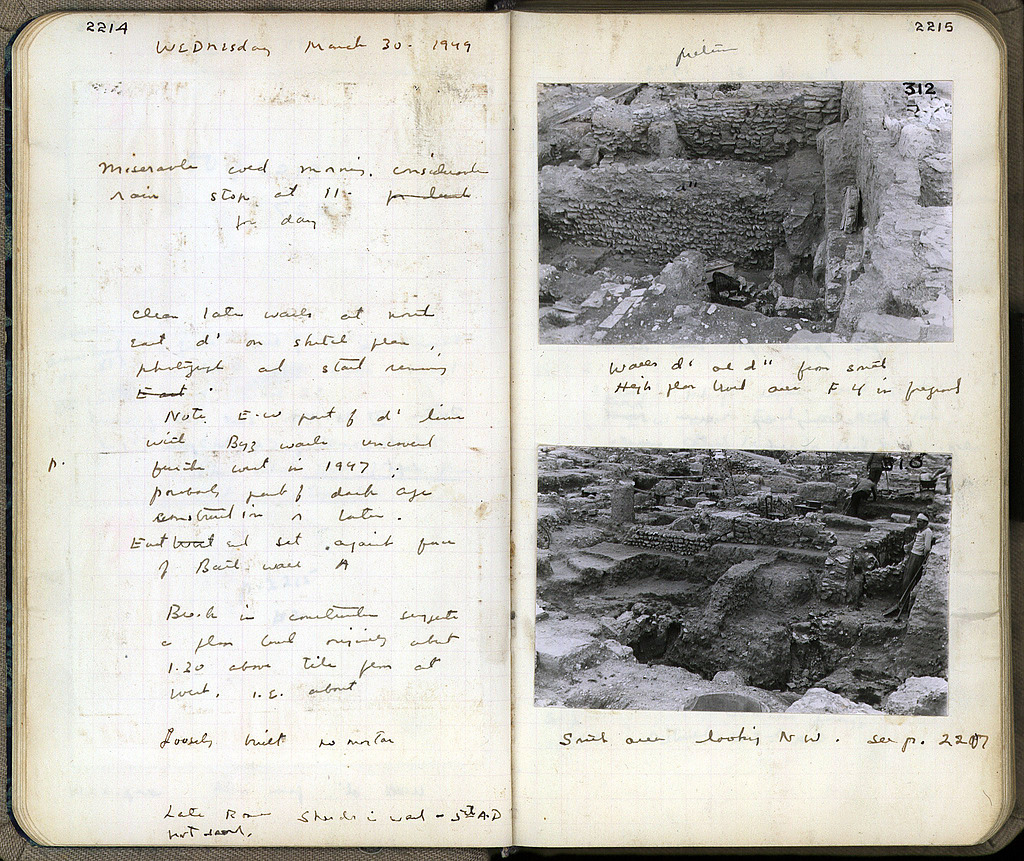 2214
Wednesday March 30. 1949
Miserable cold morning. considerable
rain stop at 11.
for day
Clean late walls at north
East d' on sketch plan,
photograph and start removing
East.
Note. E-W part of d' line
with Byz walls uncovered
further west in 1947.
probably part of dark age
construction or later.
East west end set against face
of Basil. wall A
Break in construction suggests
a floor level originally about
1.20 above tile floor at
west. i.e. about
Loosely built no mortar
Late Roman Sherds in wall - 5th A.D
not saved.
p.
2215
312
d"
Walls d' and d" from south
High floor level area F 4 in foreground
South area looking NW. see p. 2217